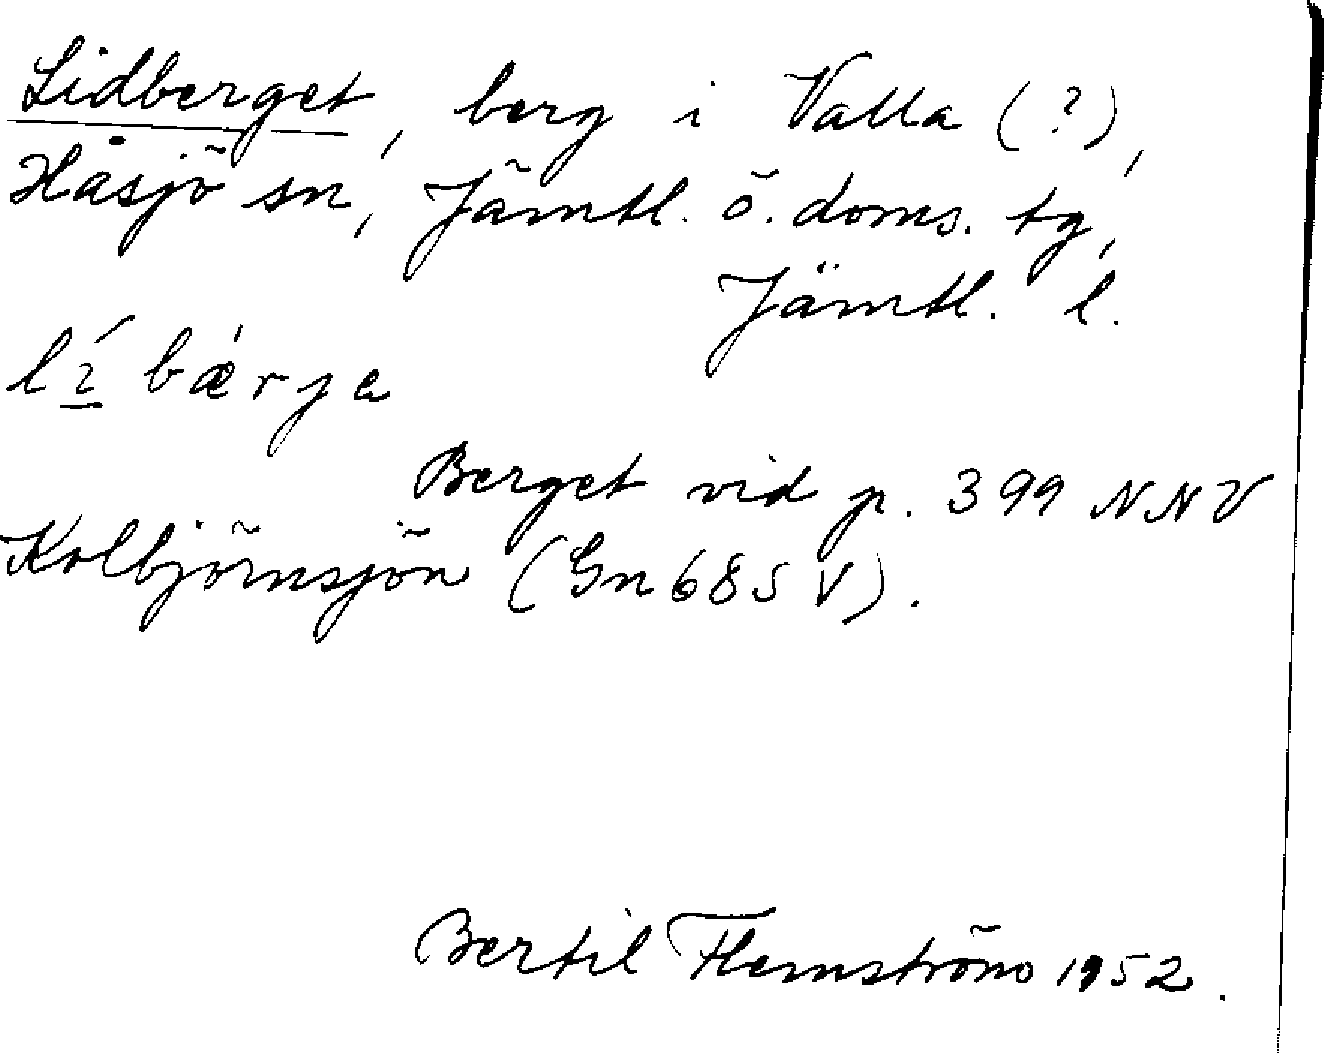 Lidberget, berg i Valla (?),
Håsjö sn, Jämtl. ö. doms. tg,
Jämtl. l.
lí bǽrja
Berget vid p. 399 NNV
Kolbjörnsjön (Gn 685 V).
Bertil Flemström 1952.